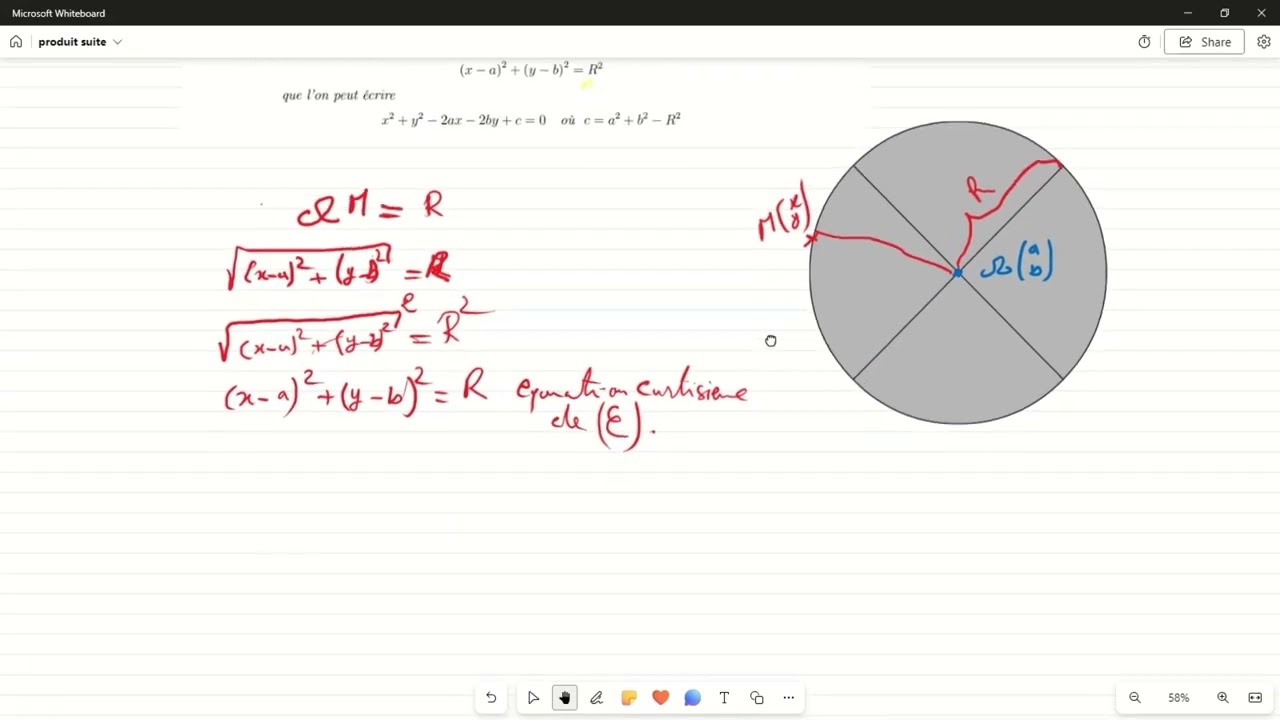 Microsoft Whiteboard
produit suite
Share
(x − a)² + (y − b)² = R²
que l'on peut écrire
x² + y² − 2ax − 2by + c = 0 où c = a² + b² − R²
ΩM = R
√(x-a)² + (y-b)² = R
√(x-a)² + (y-b)² ² = R²
(x-a)² + (y-b)² = R equation cartisiene
de (C).
M(x y)
R
Ω(a b)
58%